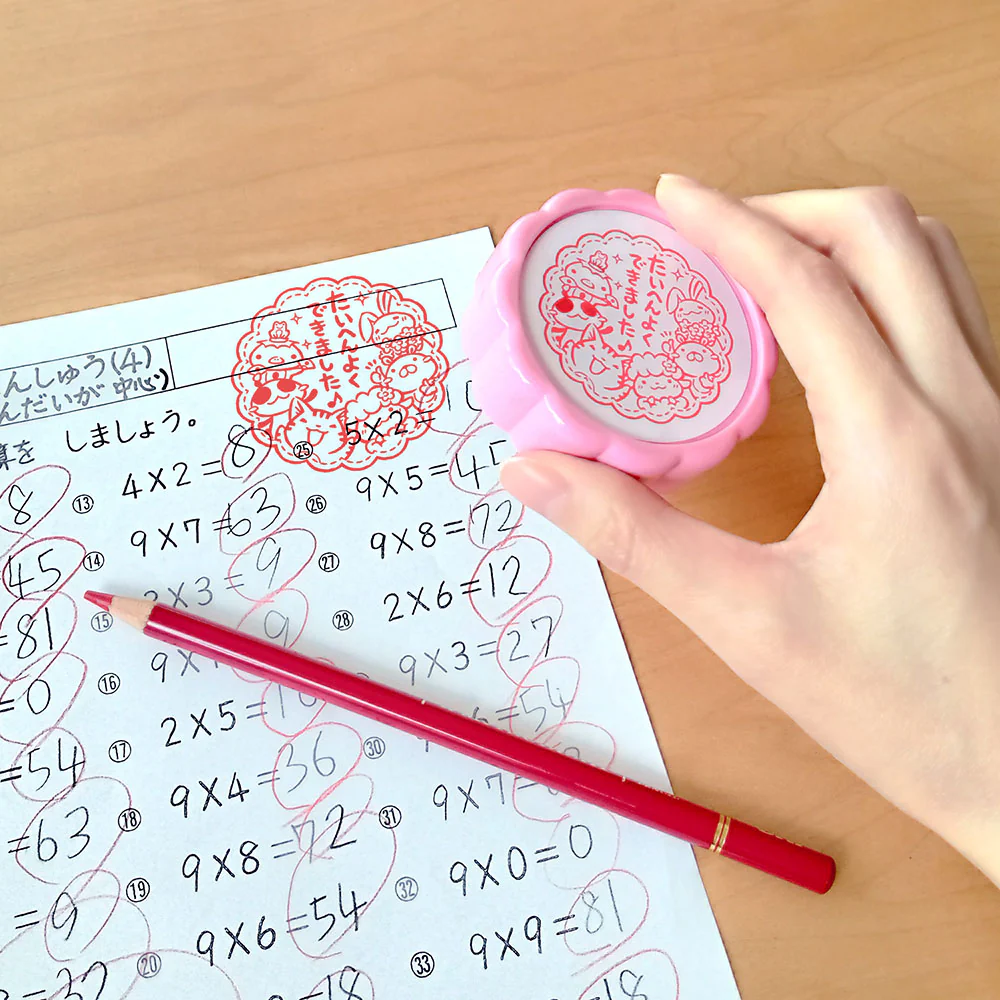 んしゅう(4)
んだいが 中心)
たいへんよく
できました♪
算を しましょう。
8 ⑬ 4×2=8 ㉕ 5×2=
45 ⑭ 9×7=63 ㉖ 9×5=45
=81 ⑮ ×3=9 ㉗ 9×8=72
=0 ⑯ 9 ㉘ 2×6=12
=54 ⑰ 2×5= 9×3=27
=63 ⑱ 9×4=36 ㉚ 6=54
=9 ⑲ 9×8=72 ㉛ 9×7=
⑳ 9×6=54 ㉜ 9×0=0
=18 ㉝ 9×9=81
=18
たいへんよく
できました♪